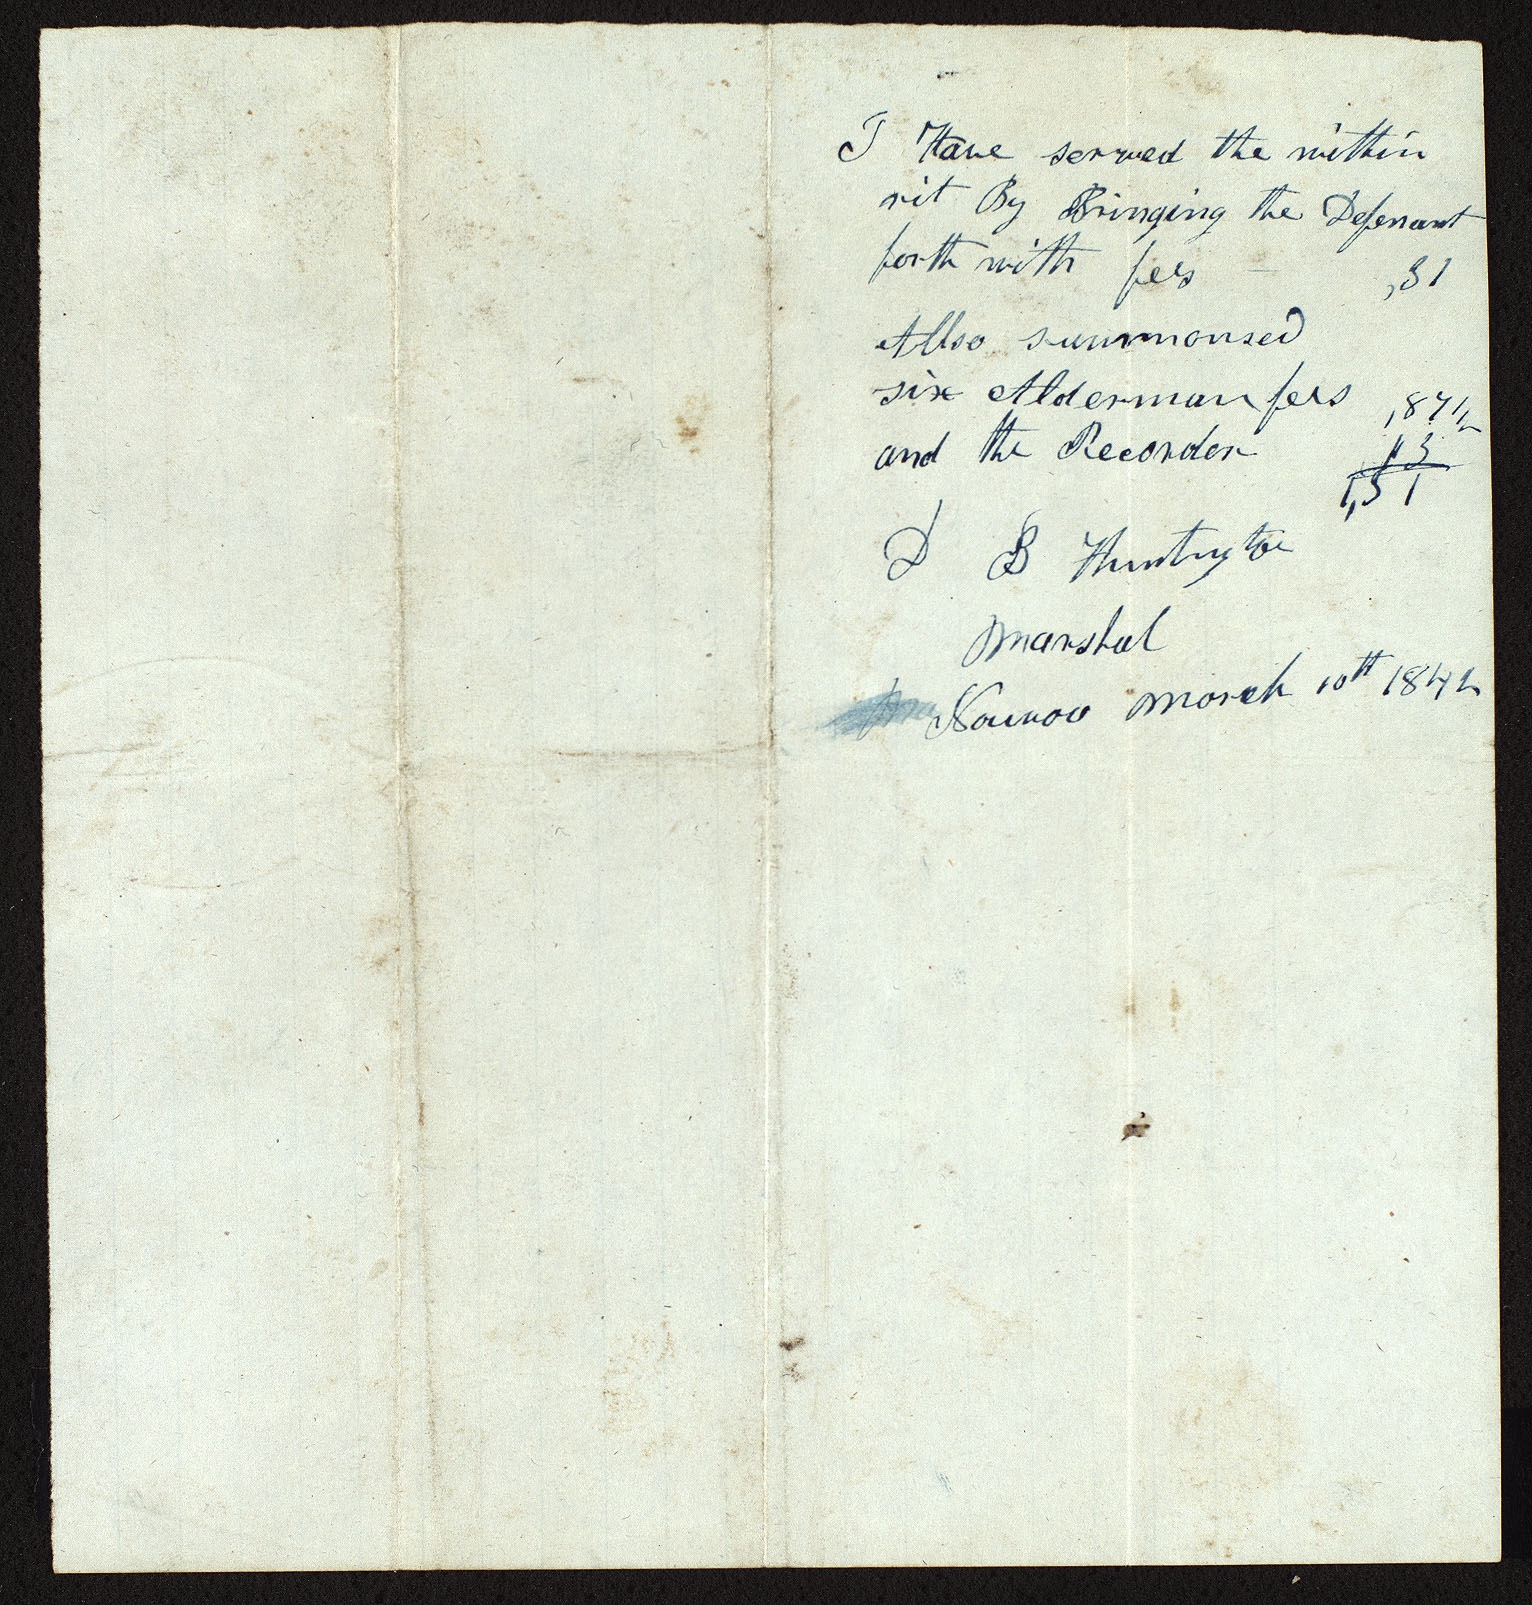 I Have served the within
rit By Bringing the Defenant
forth with fees – ,31
Allso summonsed
six Alderman fees ,87½
and the Recorder 13
1,31
D B Huntington
Marshal
Nauvoo March 10th 1842